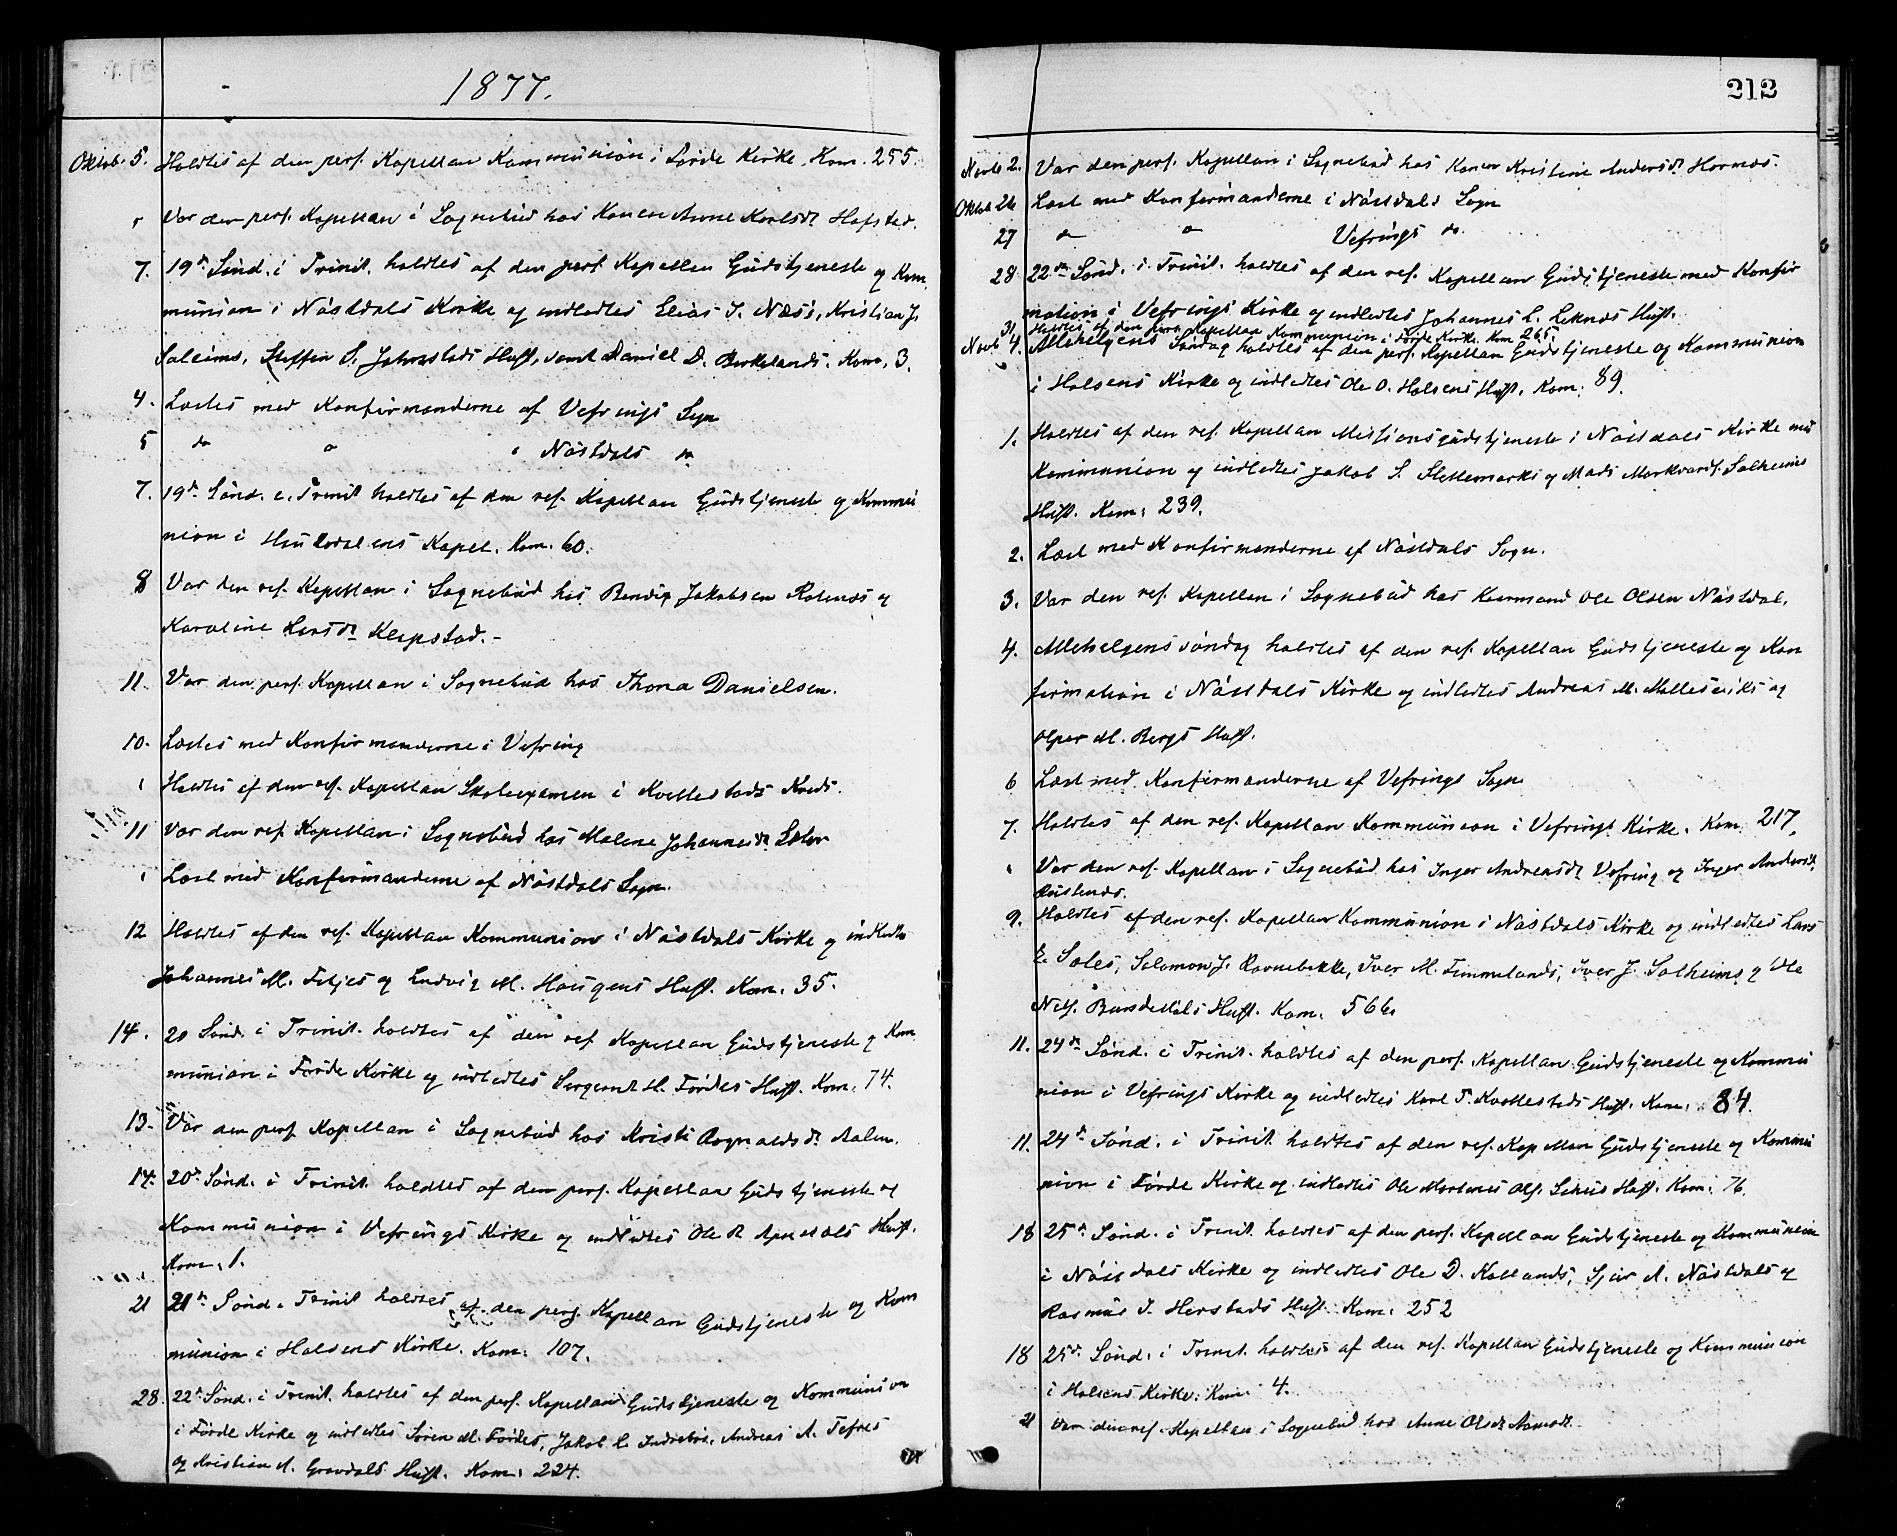 1877.
Oktob. 5. Holdtes af den pers. Kapellan Kommunion i Førde Kirke. Kom. 255.
Var den pers. Kapellan i Sognebud hos Konen Anne Karlsdr Hafstad.
7. 19de Sønd. i Trinit. holdtes af den pers. Kapellan Gudstjeneste og Kom
munion i Nøstdals Kirke og indledtes Elias J. Næss, Kristian J.
Soleims, Steffen S. Jahrnstads Hust, samt Daniel D. Birkelands. Kom. 3.
4. Læstes med Konfirmanderne af Vefrings Sogn
5 do " " Nøstdals do
7. 19de Sønd. e. Trinit holdtes af den res. Kapellan Gudstjeneste og Kommu
nion i Haukedalens Kapel. Kom. 60.
8 Var den res. Kapellan i Sognebud hos Bendix Jakobsen Rotenæs og
Karoline Larsdr Klopstad. -
11. Var den pers. Kapellan i Sognebud hos Thona Danielsen.
10. Læstes med Konfirmanderne i Vefring
" Holdtes af den res. Kapellan Skoleexamen i Kvellestads Kreds.
11 Var den res. Kapellan i Sognebud hos Malene Johannesdr.
" Læst med Konfirmanderne af Nøstdals Sogn.
12 Holdtes af den res. Kapellan Kommunion i Nøstdals Kirke og indledtes
Johannes M. Fitjes og Ludvig M. Hougens Hust. Kom. 35.
14. 20 Sønd. i Trinit. holdtes af den res. Kapellan Gudstjeneste og Kom
munion i Førde Kirke og indledtes Sergeant H. Førdes Hust. Kom. 74.
13. Var den pers. Kapellan i Sognebud hos Kristi Rognaldsdr. Aalen.
14. 20de Sønd. i Trinit. holdtes af den pers. Kapellan Gudstjeneste og
Kommunion i Vefrings Kirke og indledtes Ole R Apneldals Hust.
Kom. 1.
21 21de Sønd. Trinit holdtes af den pers. Kapellan Gudstjeneste og Kom
munion i Holsens Kirke. Kom. 107.
28. 22de Sønd. i Trinit. holdtes af den pers. Kapellan Gudstjeneste og Kommunion
i Førde Kirke og indledtes Søren M. Førdes, Jakob L. Indrebøs, Andreas A. Tefres
og Kristian A. Gravdals Hust. Kom: 224.
212
Novb 2. Var den pers. Kapellan i Sognebud hos Konen Kristine Andersdr Hornæs.
Oktob 26 Læst med Konfirmanderne i Nøstdals Sogn
27 do " Vefrings do.
28 22de Sønd. i Trinit. holdtes af den res. Kapellan Gudstjeneste med Konfir
mation i Vefrings Kirke og indledtes Johannes L. Leknæs Hust.
31 Holdtes af den pers. Kapellan Kommunion i Førde Kirke. Kom 265.
Novb 4. Allehelgens Søndag holdtes af den pers. Kapellan Gudstjeneste og Kommunion
i Holsens Kirke og indledtes Ole O. Holsens Hust. Kom. 89.
1. Holdtes af den res. Kapellan Missionsgudstjeneste i Nøstdals Kirke med
Kommunion og indledtes Jakob S. Slettemarks og Mads Markvards. Solheims
Hust. Kom: 239.
2. Læst med Konfirmanderne af Nøstdals Sogn.
3. Var den res. Kapellan i Sognebud hos Kaarmand Ole Olsen Nøstdal.
4. Allehelgens søndag holdtes af den res. Kapellan Gudstjeneste og Kon
firmation i Nøstdals Kirke og indledtes Andreas M. og
M. Bergs Hust.
6 Læst med Konfirmanderne af Vefrings Sogn
7. Holdtes af den res. Kapellan Kommunion i Vefrings Kirke. Kom. 217.
" Var den res. Kapellan i Sognebud hos Inger Andreasdr Vefring og Inger Andersdr.
9. Holdtes af den res. Kapellan Kommunion i Nøstdals Kirke og indledtes Lars
E. Soles, Salomon J. Ravnebække, Iver M. Fimmelands, Iver J. Solheims og Ole
Kom. 566.
11. 24de Sønd. i Trinit. holdtes af den pers. Kapellan Gudstjeneste og Kommu
nion i Vefrings Kirke og indledtes Karl T. Kvellestads Hust. Kom: 84.
11. 24de Sønd. i Trinit. holdtes af den res. Kapellan Gudstjeneste og Kommu
nion i Førde Kirke og indledtes Ole Martinus Ols. Hust. Kom: 76.
18 25de Sønd. i Trinit. holdtes af den pers. Kapellan Gudstjeneste og Kommunion
i Nøstdals Kirke og indledtes Ole D. Kallands, Sjur A. Nøstdals og
Rasmus J. Herstads Hust. Kom: 252
18 25de Sønd. i Trinit. holdtes af den res. Kapellan Gudstjeneste og Kommunion
i Holsens Kirke. Kom. 4.
21 Var den res. Kapellan i Sognebud hos Anne Olsdr